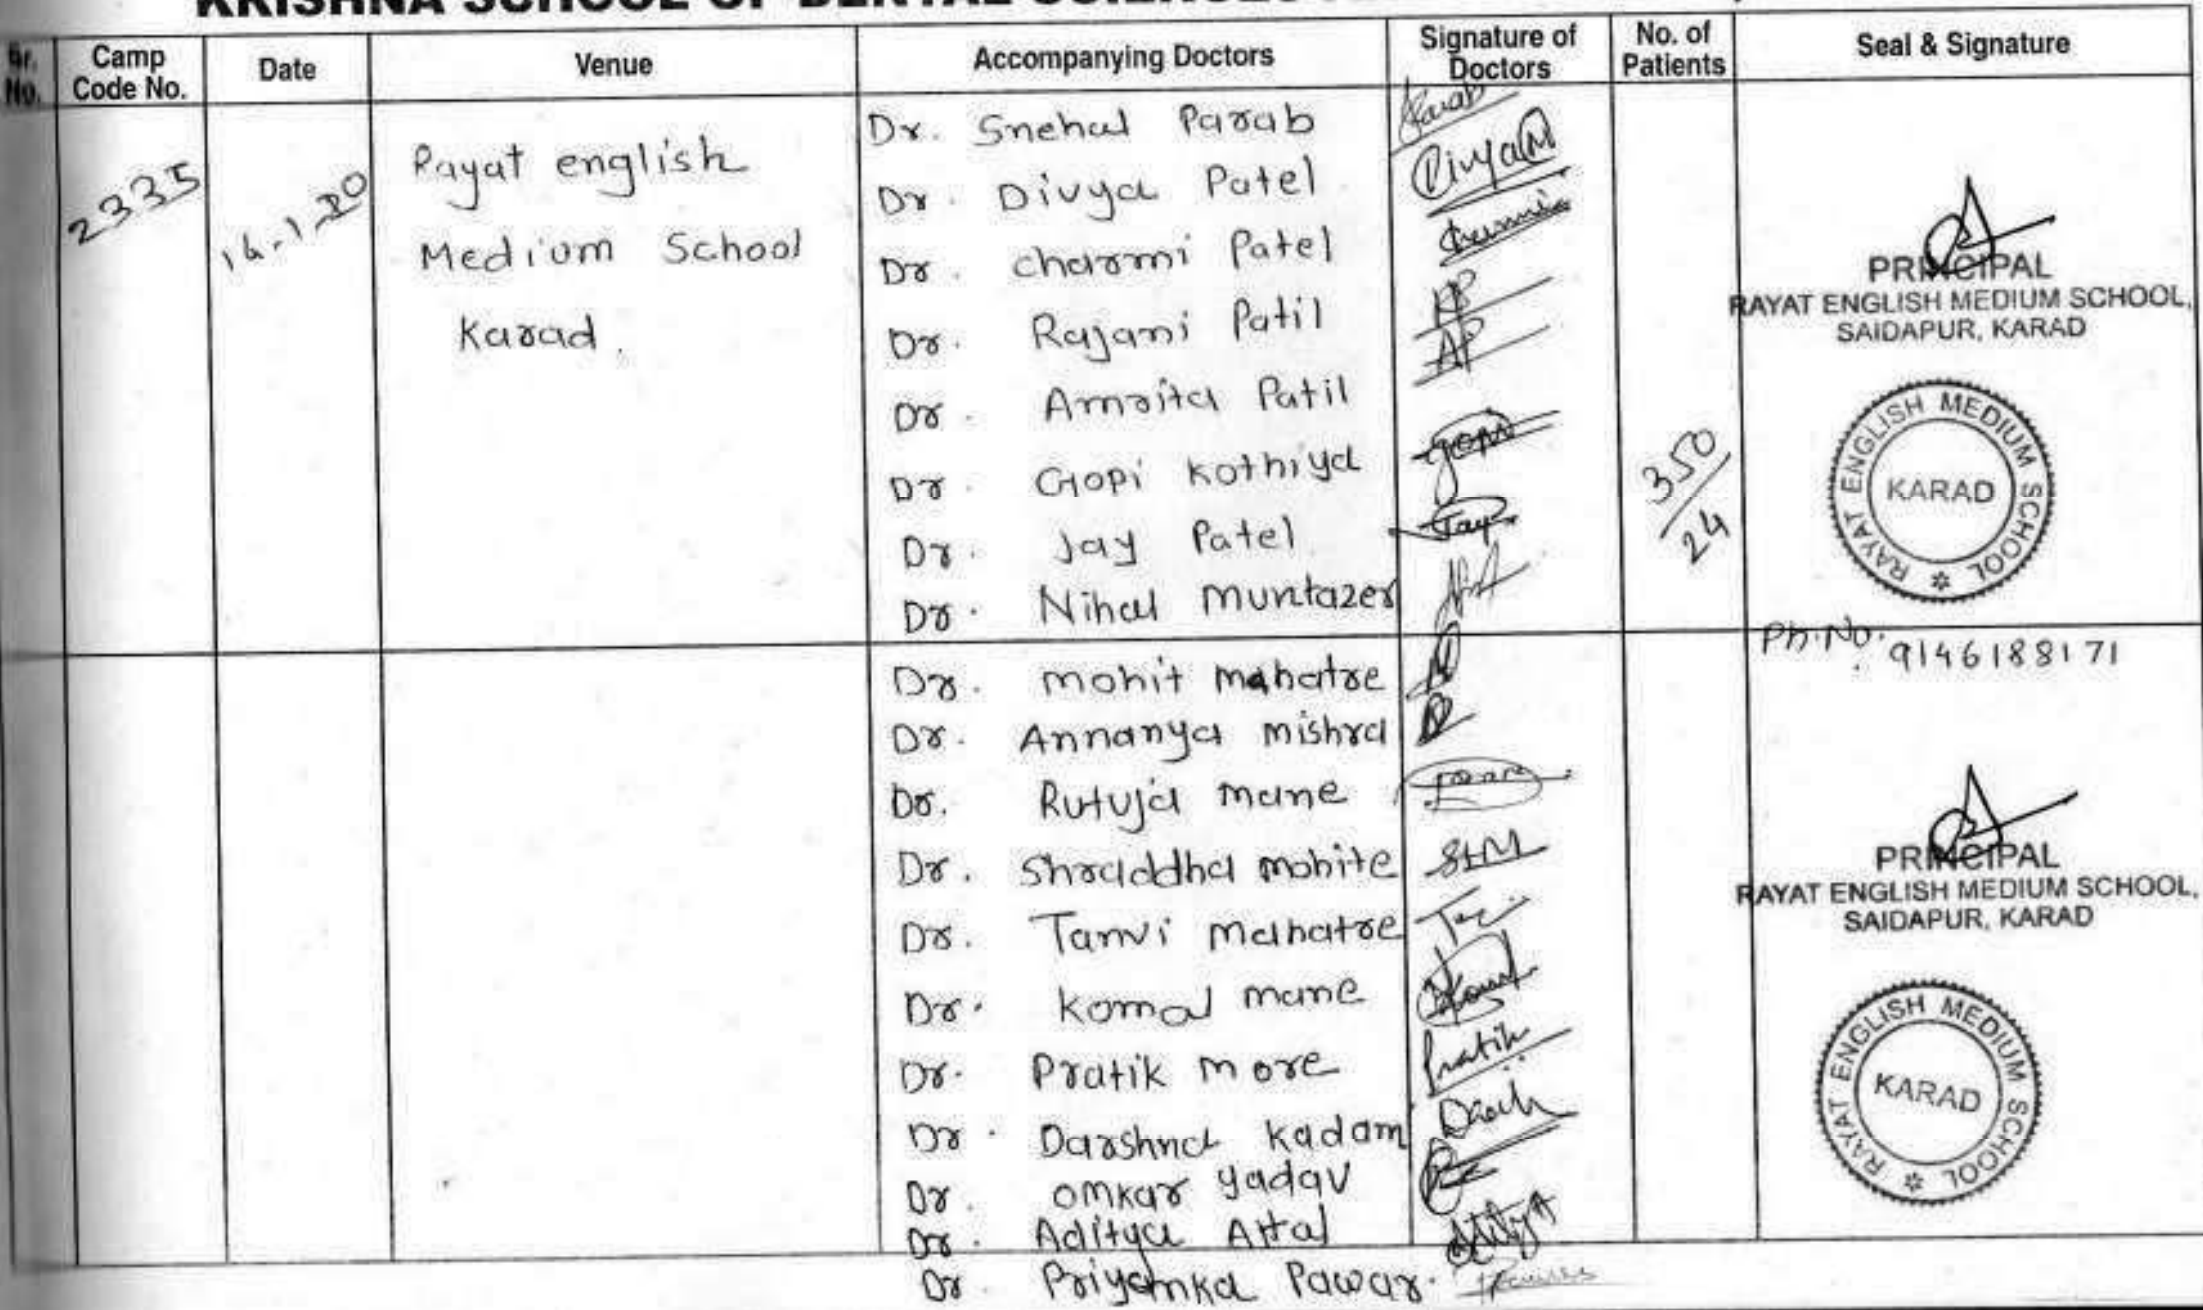 KRISHNA SCHOOL OF DENTAL SCIENCES
Sr. No.
Camp Code No.
Date
Venue
Accompanying Doctors
Signature of Doctors
No. of Patients
Seal & Signature
2335
Rayat english
Medium School
Karad.
Dr. Snehal Parab
Dr. Divya Patel
Dr. charmi Patel
Dr. Rajani Patil
Dr. Amrita Patil
Dr. Gopi Kothiya
Dr. Jay Patel
Dr. Nihal Muntazer
Parab
Divya
AP
Gopi
Jay
350/24
PRINCIPAL
RAYAT ENGLISH MEDIUM SCHOOL,
SAIDAPUR, KARAD
RAYAT ENGLISH MEDIUM SCHOOL
KARAD
Ph.No. 9146188171
Dr. mohit mahatre
Dr. Annanya mishra
Dr. Rutuja mane
Dr. Shraddha mohite
Dr. Tanvi mahatre
Dr. Komal mane
Dr. Pratik more
Dr. Darshna kadam
Dr. omkar yadav
Dr. Aditya Attal
Dr. Priyanka Pawar.
SHM
Pratik
PRINCIPAL
RAYAT ENGLISH MEDIUM SCHOOL,
SAIDAPUR, KARAD
RAYAT ENGLISH MEDIUM SCHOOL
KARAD